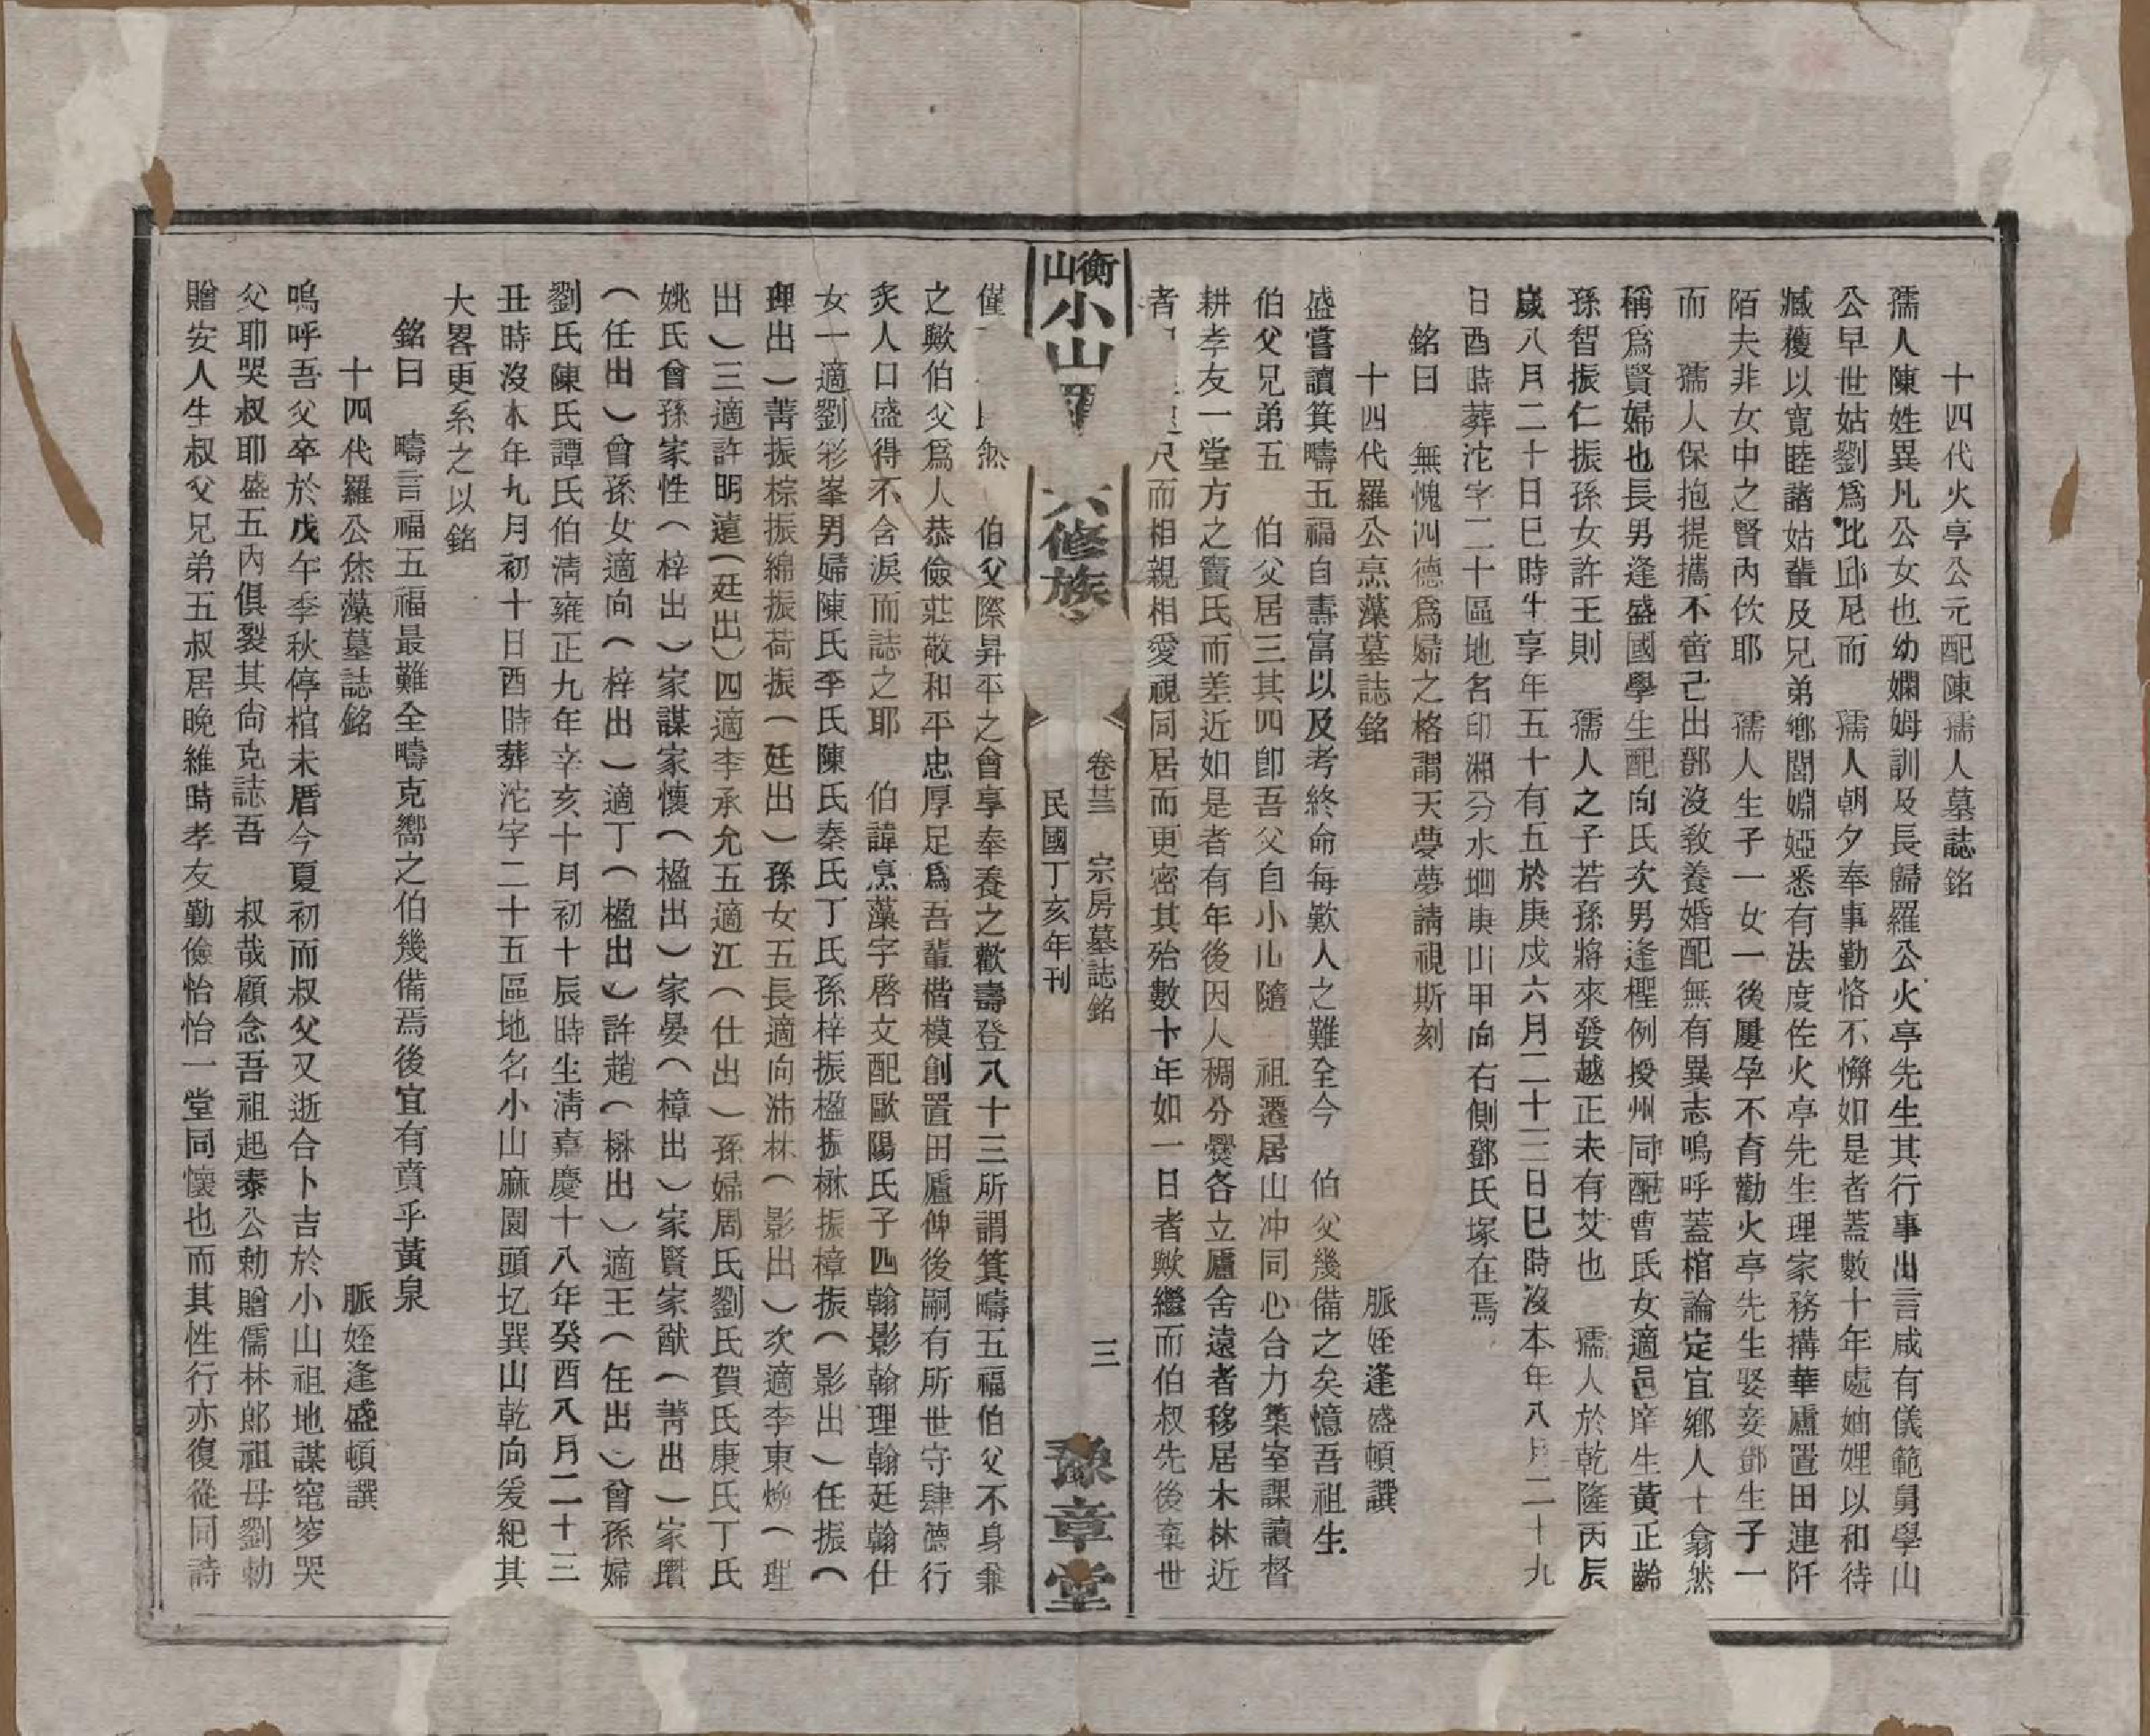 十四代火亭公元配陳孺人墓誌銘
孺人陳姓異凡公女也幼嫻姆訓及長歸羅公火亭先生其行事出言咸有儀範舅學山
公早世姑劉爲比邱尼而　孺人朝夕奉事勤恪不懈如是者蓋數十年處妯娌以和待
臧獲以寬睦諸姑輩及兄弟鄉閭婣婭悉有法度佐火亭先生理家務搆華廬置田連阡
陌夫非女中之賢內佽耶　孺人生子一女一後屢孕不育勸火亭先生娶妾鄧生子一
而　孺人保抱提攜不啻己出鄧沒敎養婚配無有異志嗚呼蓋棺論定宜鄉人士翕然
稱爲賢婦也長男逢盛國學生配向氏次男逢檉例授州同配曹氏女適邑庠生黃正齡
孫智振仁振孫女許王則　孺人之子若孫將來發越正未有艾也　孺人於乾隆丙辰
歲八月二十日巳時生享年五十有五於庚戌六月二十三日巳時沒本年八月二十九
日酉時葬沱字二十區地名印湘分水坳庚山甲向右側鄧氏塚在焉
銘曰　無愧四德爲婦之格謂天夢夢請視斯刻
十四代羅公烝藻墓誌銘　脈姪逢盛頓譔
盛嘗讀箕疇五福自壽富以及考終命每歎人之難全今　伯父幾備之矣憶吾祖生
伯父兄弟五　伯父居三其四卽吾父自小山隨　祖遷居山冲同心合力築室課讀督
耕孝友一堂方之竇氏而差近如是者有年後因人稠分爨各立廬舍遠者移居木林近
者　尺而相親相愛視同居而更密其殆數十年如一日者歟繼而伯叔先後棄世
衡山小山　六修族
卷廿三　宗房墓誌銘
民國丁亥年刊
三
豫章堂
僅　然　伯父際昇平之會享奉養之歡壽登八十三所謂箕疇五福伯父不身兼
之歟伯父爲人恭儉莊敬和平忠厚足爲吾輩楷模創置田廬俾後嗣有所世守肆德行
炙人口盛得不含淚而誌之耶　伯諱烝藻字啓文配歐陽氏子四翰影翰理翰廷翰仕
女一適劉彩峯男婦陳氏李氏陳氏秦氏丁氏孫梓振楹振楙振樟振（影出）任振（
理出）菁振棕振綿振荷振（廷出）孫女五長適向沛林（影出）次適李東煥（理
出）三適許明遠（廷出）四適李承允五適江（仕出）孫婦周氏劉氏賀氏康氏丁氏
姚氏曾孫家性（梓出）家謀家懷（楹出）家晏（樟出）家賢家猷（菁出）家瓚
（任出）曾孫女適向（梓出）適丁（楹出）許趙（楙出）適王（任出）曾孫婦
劉氏陳氏譚氏伯淸雍正九年辛亥十月初十辰時生淸嘉慶十八年癸酉八月二十三
丑時沒本年九月初十日酉時葬沱字二十五區地名小山麻園頭圪巽山乾向爰紀其
大畧更系之以銘
銘曰　疇言福五福最難全疇克嚮之伯幾備焉後宜有賁乎黃泉
十四代羅公烋藻墓誌銘　脈姪逢盛頓譔
嗚呼吾父卒於戊午季秋停棺未厝今夏初而叔父又逝合卜吉於小山祖地謀窀穸哭
父耶哭叔耶盛五內俱裂其尙克誌吾　叔哉顧念吾祖起泰公勅贈儒林郎祖母劉勅
贈安人生叔父兄弟五叔居晚維時孝友勤儉怡怡一堂同懷也而其性行亦復從同詩